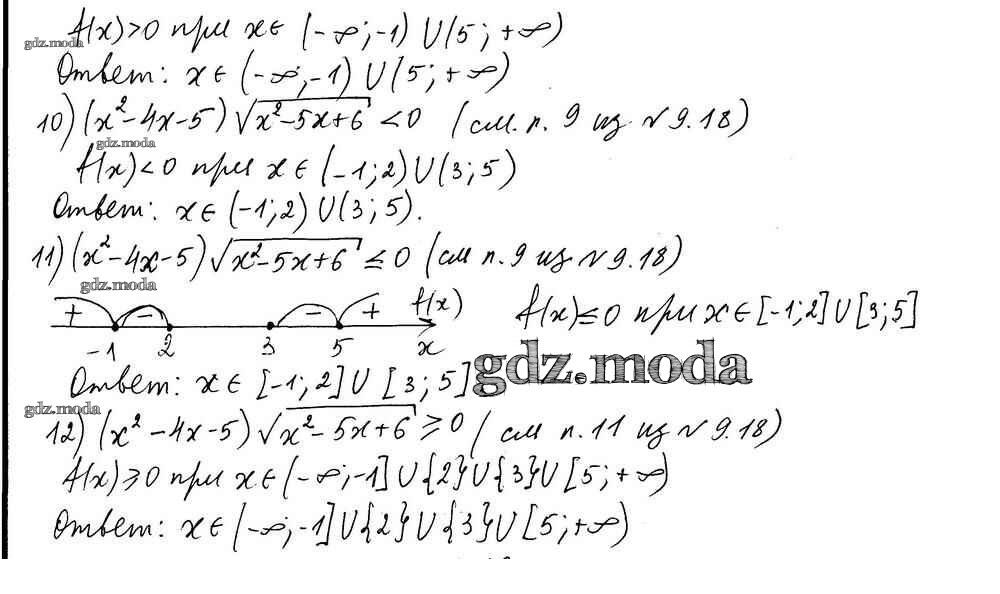 f(x)>0 при x∈ (-∞;-1) U(5;+∞)
gdz.moda
Ответ: x∈ (-∞;-1) U(5;+∞)
10) (x²-4x-5)√x²-5x+6 <0 (см. п. 9 из №9.18)
gdz.moda
f(x)<0 при x∈ (-1;2) U(3;5)
Ответ: x∈ (-1;2) U(3;5).
11) (x²-4x-5)√x²-5x+6 ≤0 (см п.9 из №9.18)
gdz.moda
+ - - + f(x)
-1 2 3 5 x
f(x)≤0 при x∈[-1;2]U[3;5]
Ответ: x∈ [-1;2]U [3;5]
gdz.moda
gdz.moda
12) (x²-4x-5)√x²-5x+6 ≥0 (см п.11 из №9.18)
f(x)≥0 при x∈(-∞;-1] U{2}U{3}U[5;+∞)
Ответ: x∈(-∞;-1]U{2}U{3}U[5;+∞)